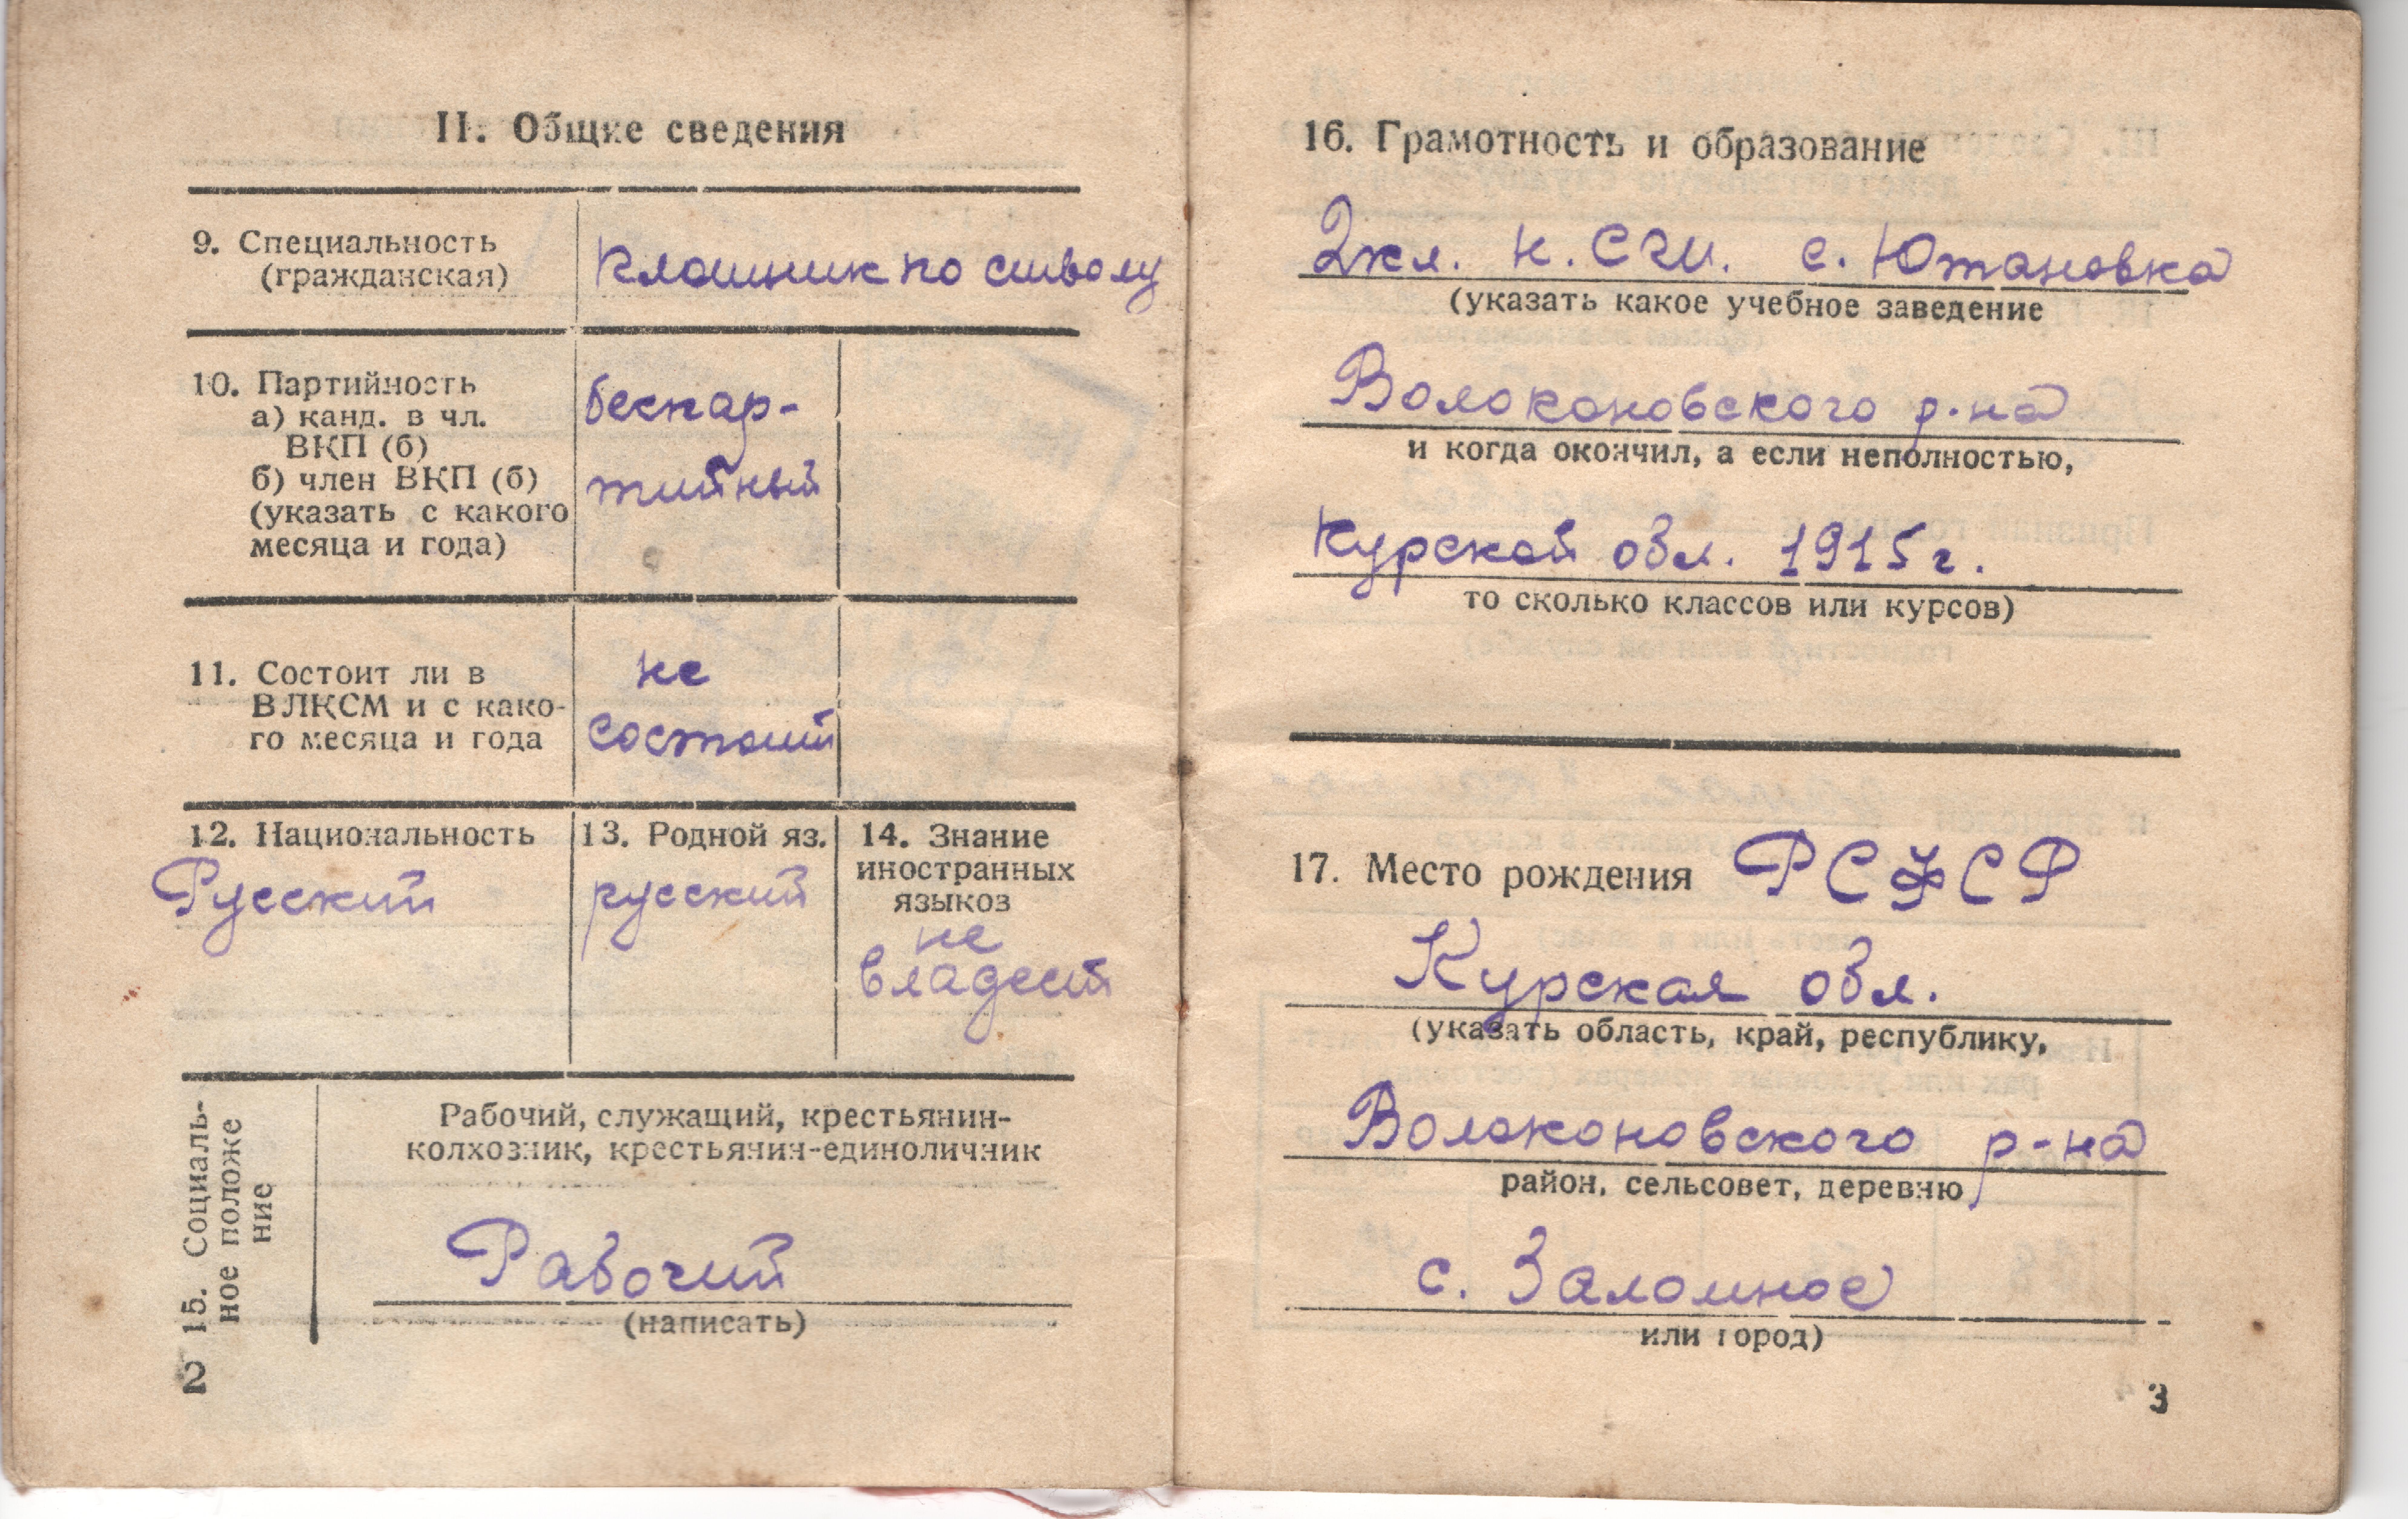 II. Общие сведения
9. Специальность
(гражданская)
по
10. Партийность
а) канд. в чл.
ВКП (б)
б) член ВКП (б)
(указать с какого
месяца и года)
беспар-
тийный
11. Состоит ли в
ВЛКСМ и с како-
го месяца и года
не
состоит
12. Национальность
Русский
13. Родной яз.
русский
14. Знание
иностранных
языков
не
владеет
15. Социаль-
ное положе
ние
Рабочий, служащий, крестьянин-
колхозник, крестьянин-единоличник
Рабочий
(написать)
2
16. Грамотность и образование
2кл. с. Ютановка
(указать какое учебное заведение
Волоконовского р-на
и когда окончил, а если неполностью,
Курской обл. 1915г.
то сколько классов или курсов)
17. Место рождения РСФСР
Курская обл.
(указать область, край, республику,
Волоконовского р-на
район, сельсовет, деревню
с. Заломное
или город)
3